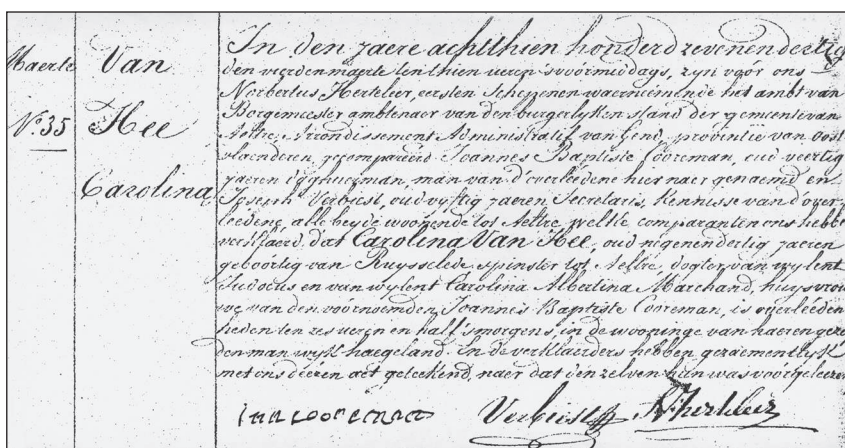 Maerte
N.º 35
Van
Hee
Carolina
In den jaere achthien honderd zevenendertig
den vierden maerte ten thien ueren s'voormiddags, zyn voór ons
Norbertus Herteleer, eersten Schepenen waernemende het ambt van
Borgemeester ambtenaer van den burgerlyken stand der gemeente van
Aeltre, Arrondissement Administratif van Gend, provintie van oost
vlaenderen, gecompareerd Joannes Baptiste Cooreman, oud veertig
jaeren daghuerman, man van d'overledene hier naer genaemd en
Joseph Verbiest, oud vyftig jaeren Secretaris, kennisse van d'over-
leedene, alle beyde woonende tot Aeltre, welke comparanten ons hebbe
verklaerd, dat Carolina Van Hee, oud nigenendertig jaeren
geboórtig van Ruysselede, spinster tot Aeltre, dogter van wylent
Judocus en van wylent Carolina Albertina Marchand, huysvrou
we van den voórnoemden Joannes Baptiste Cooreman, is overleéden
heden ten zes ueren en half s'morgens, in de wooninge van haeren
den man wyk haegeland. En de verklaerders hebben gezaementlyk
met ons dezen act geteekend, naer dat den zelven hun was voórgeleezen
Verbiest N. herteleer